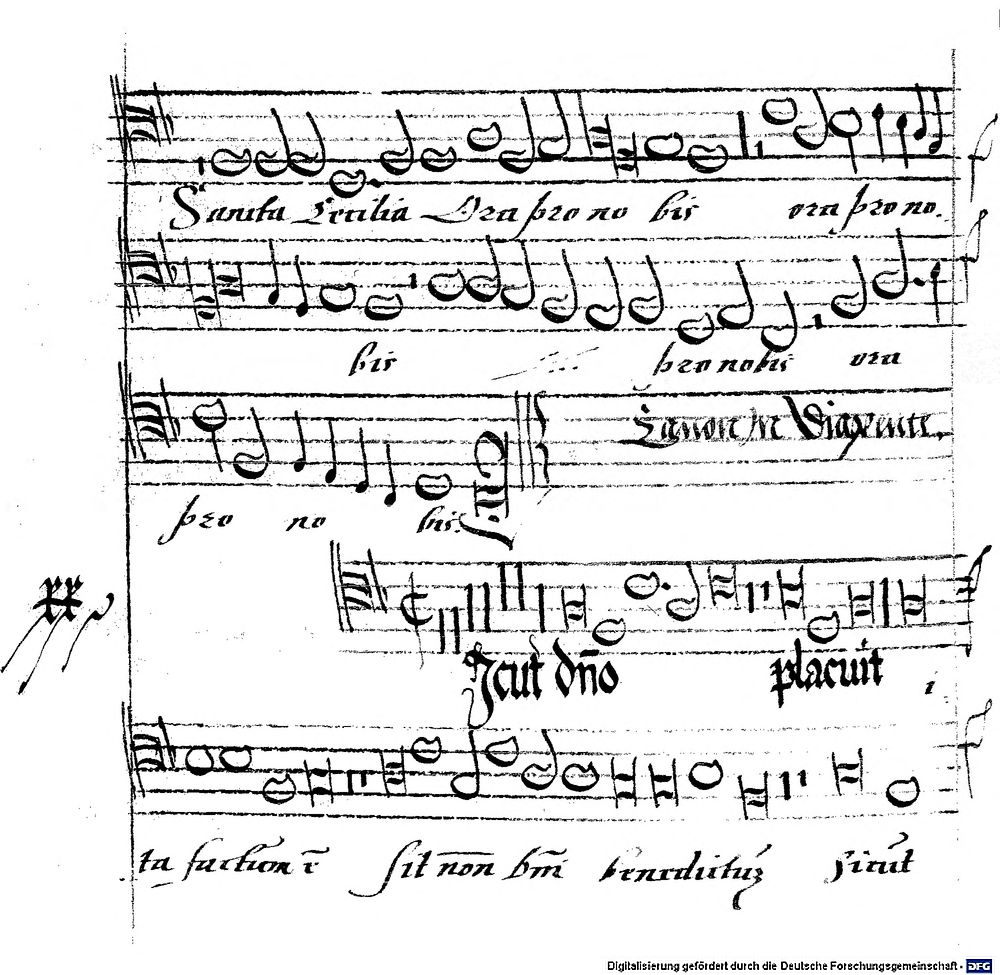 Sancta Cecilia Ora pro no bis ora pro no.
bis pro nobis ora
Canon In Diapente.
pro no bis
Icut dño placuit i
ta factum ē sit non bm̄ benedictuȝ Sicut
Digitalisierung gefördert durch die Deutsche Forschungsgemeinschaft - DFG